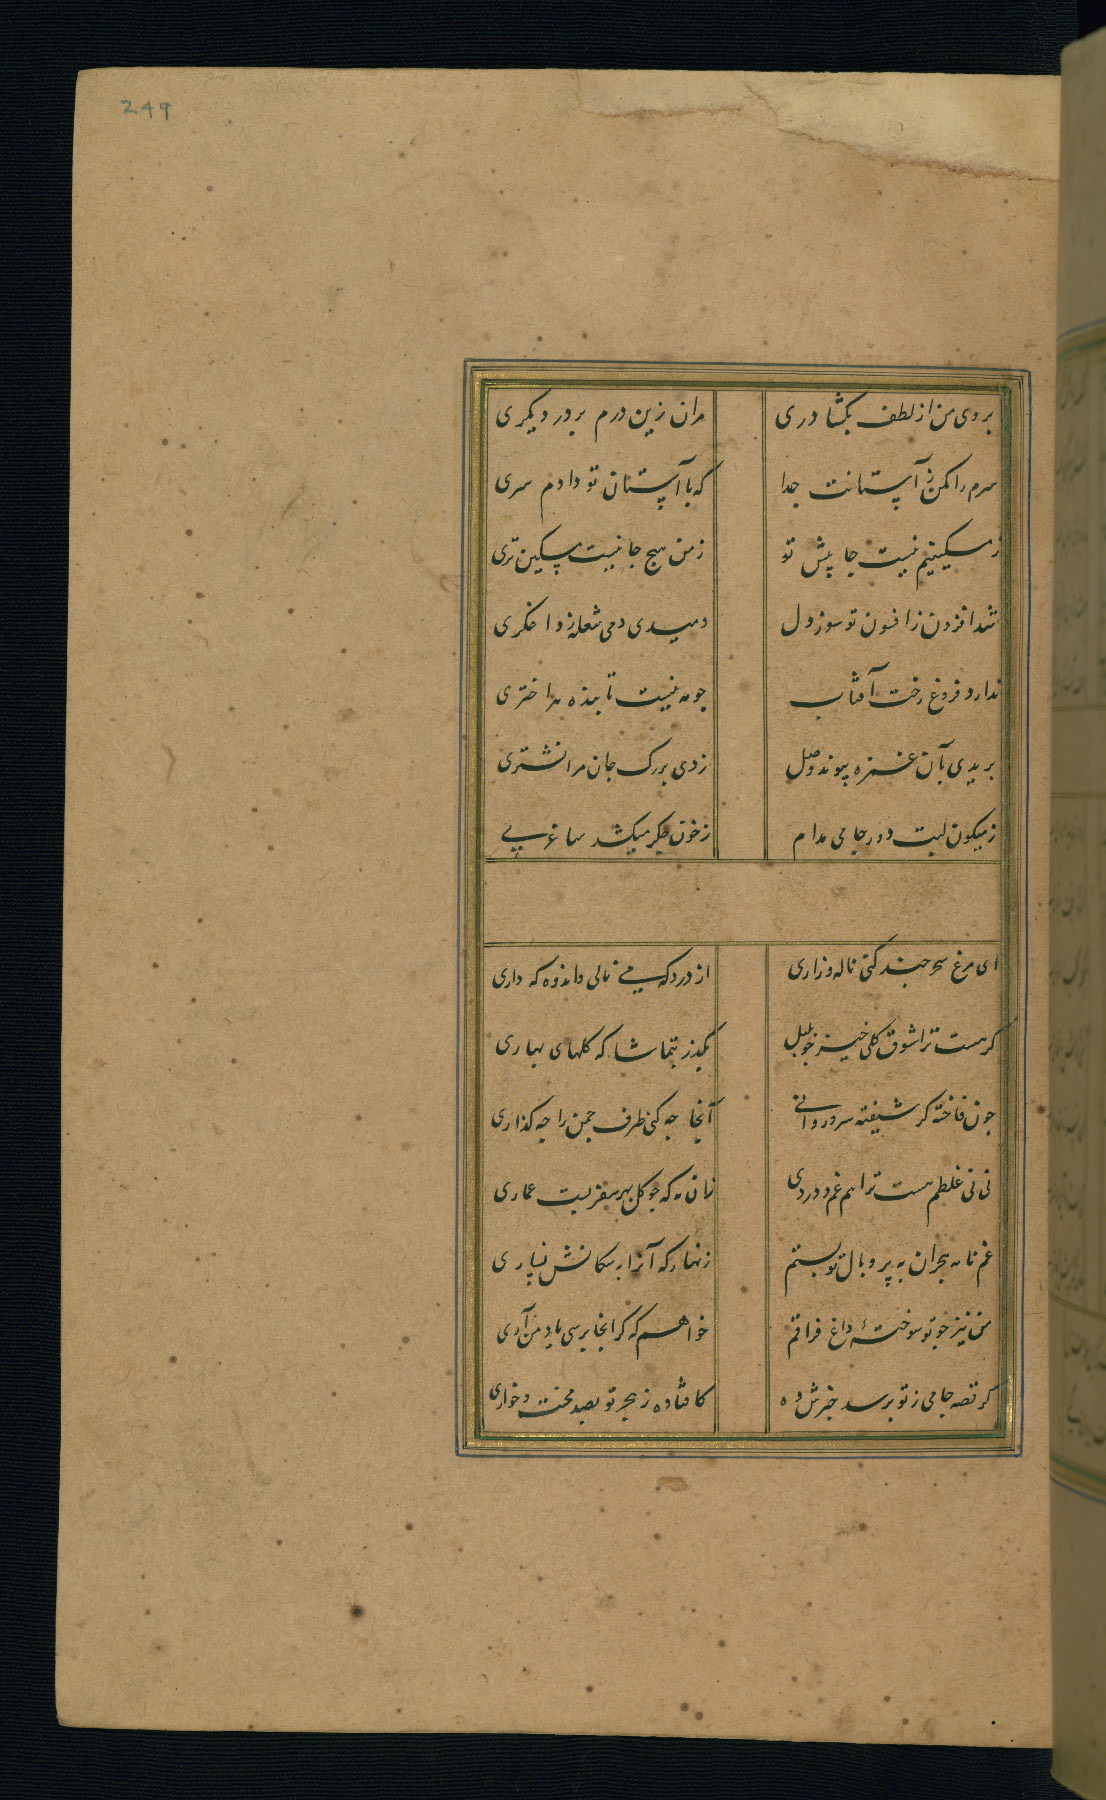 249
بروی من از لطف بکشا دری مران زین درم بر در دیکری
سرم را مکن ز آستانت جدا که با آستان تو دادم سری
ز مسکینیم نیست جا پیش تو ز من هیچ جا نیست مسکین تری
شد افزون ز افسون تو سوز دل دمیدی دمی شعله زد اخکری
ندارد فروغ رخت آفتاب چو مه نیست تابنده هر اختری
بریدی بآن غمزه پیوند وصل زدی بر رک جان مرا نشتری
ز میکون لبت دور جامی مدام ز خون جکر میکشد ساغری
ای مرغ سحر چند کنی ناله و زاری از درد که می نالی و اندوه که داری
کر هست ترا شوق کلی خیز چو بلبل بکذر بتماشا که کلهای بهاری
چون فاخته کر شیفته سرو روانی آنجا چه کنی طرف چمن را چه کذاری
نی نی غلطم هست ترا هم غم و دردی زان مه که چو کل بهر سفر بست عماری
غم نامه هجران به پر و بال تو بستم زنهار که آنرا به سکانش نسپاری
من نیز چو تو سوختهٔ داغ فراقم خواهم که کر انجا برسی یاد من آری
کر قصه جامی ز تو پرسد خبرش ده کافتاده ز هجر تو بصد محنت و خواری